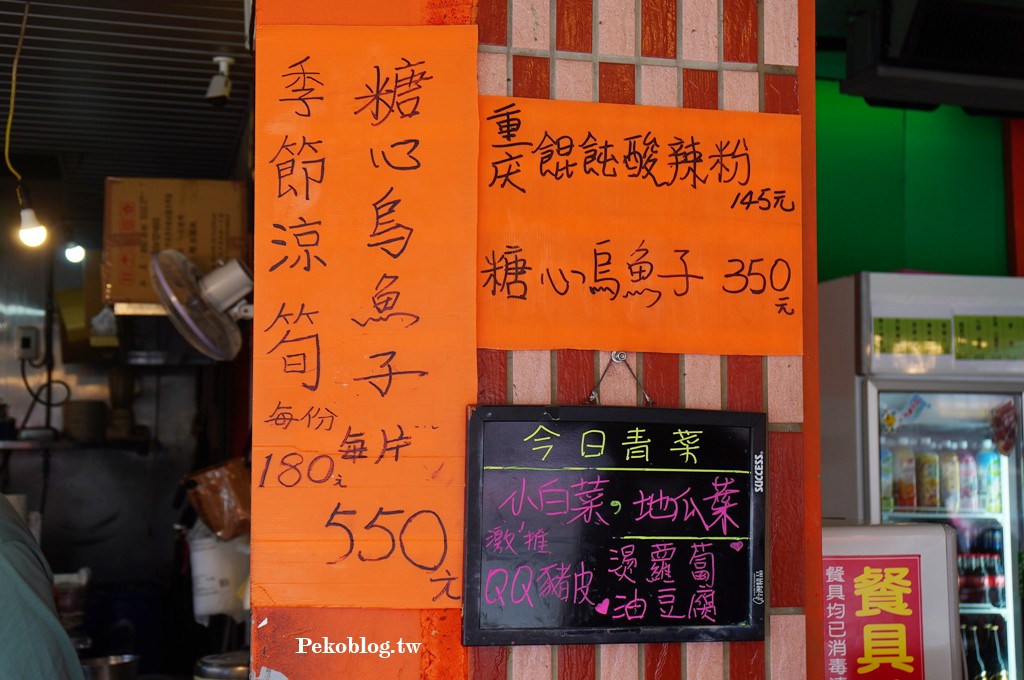 糖心烏魚子
每片
550元
季節涼筍
每份
180元
重庆餛飩酸辣粉
145元
糖心烏魚子 350元
今日青菜
小白菜，地瓜葉
激推
QQ豬皮
燙蘿蔔
油豆腐
SUCCESS.
餐具
餐具均已消毒
Pekoblog.tw